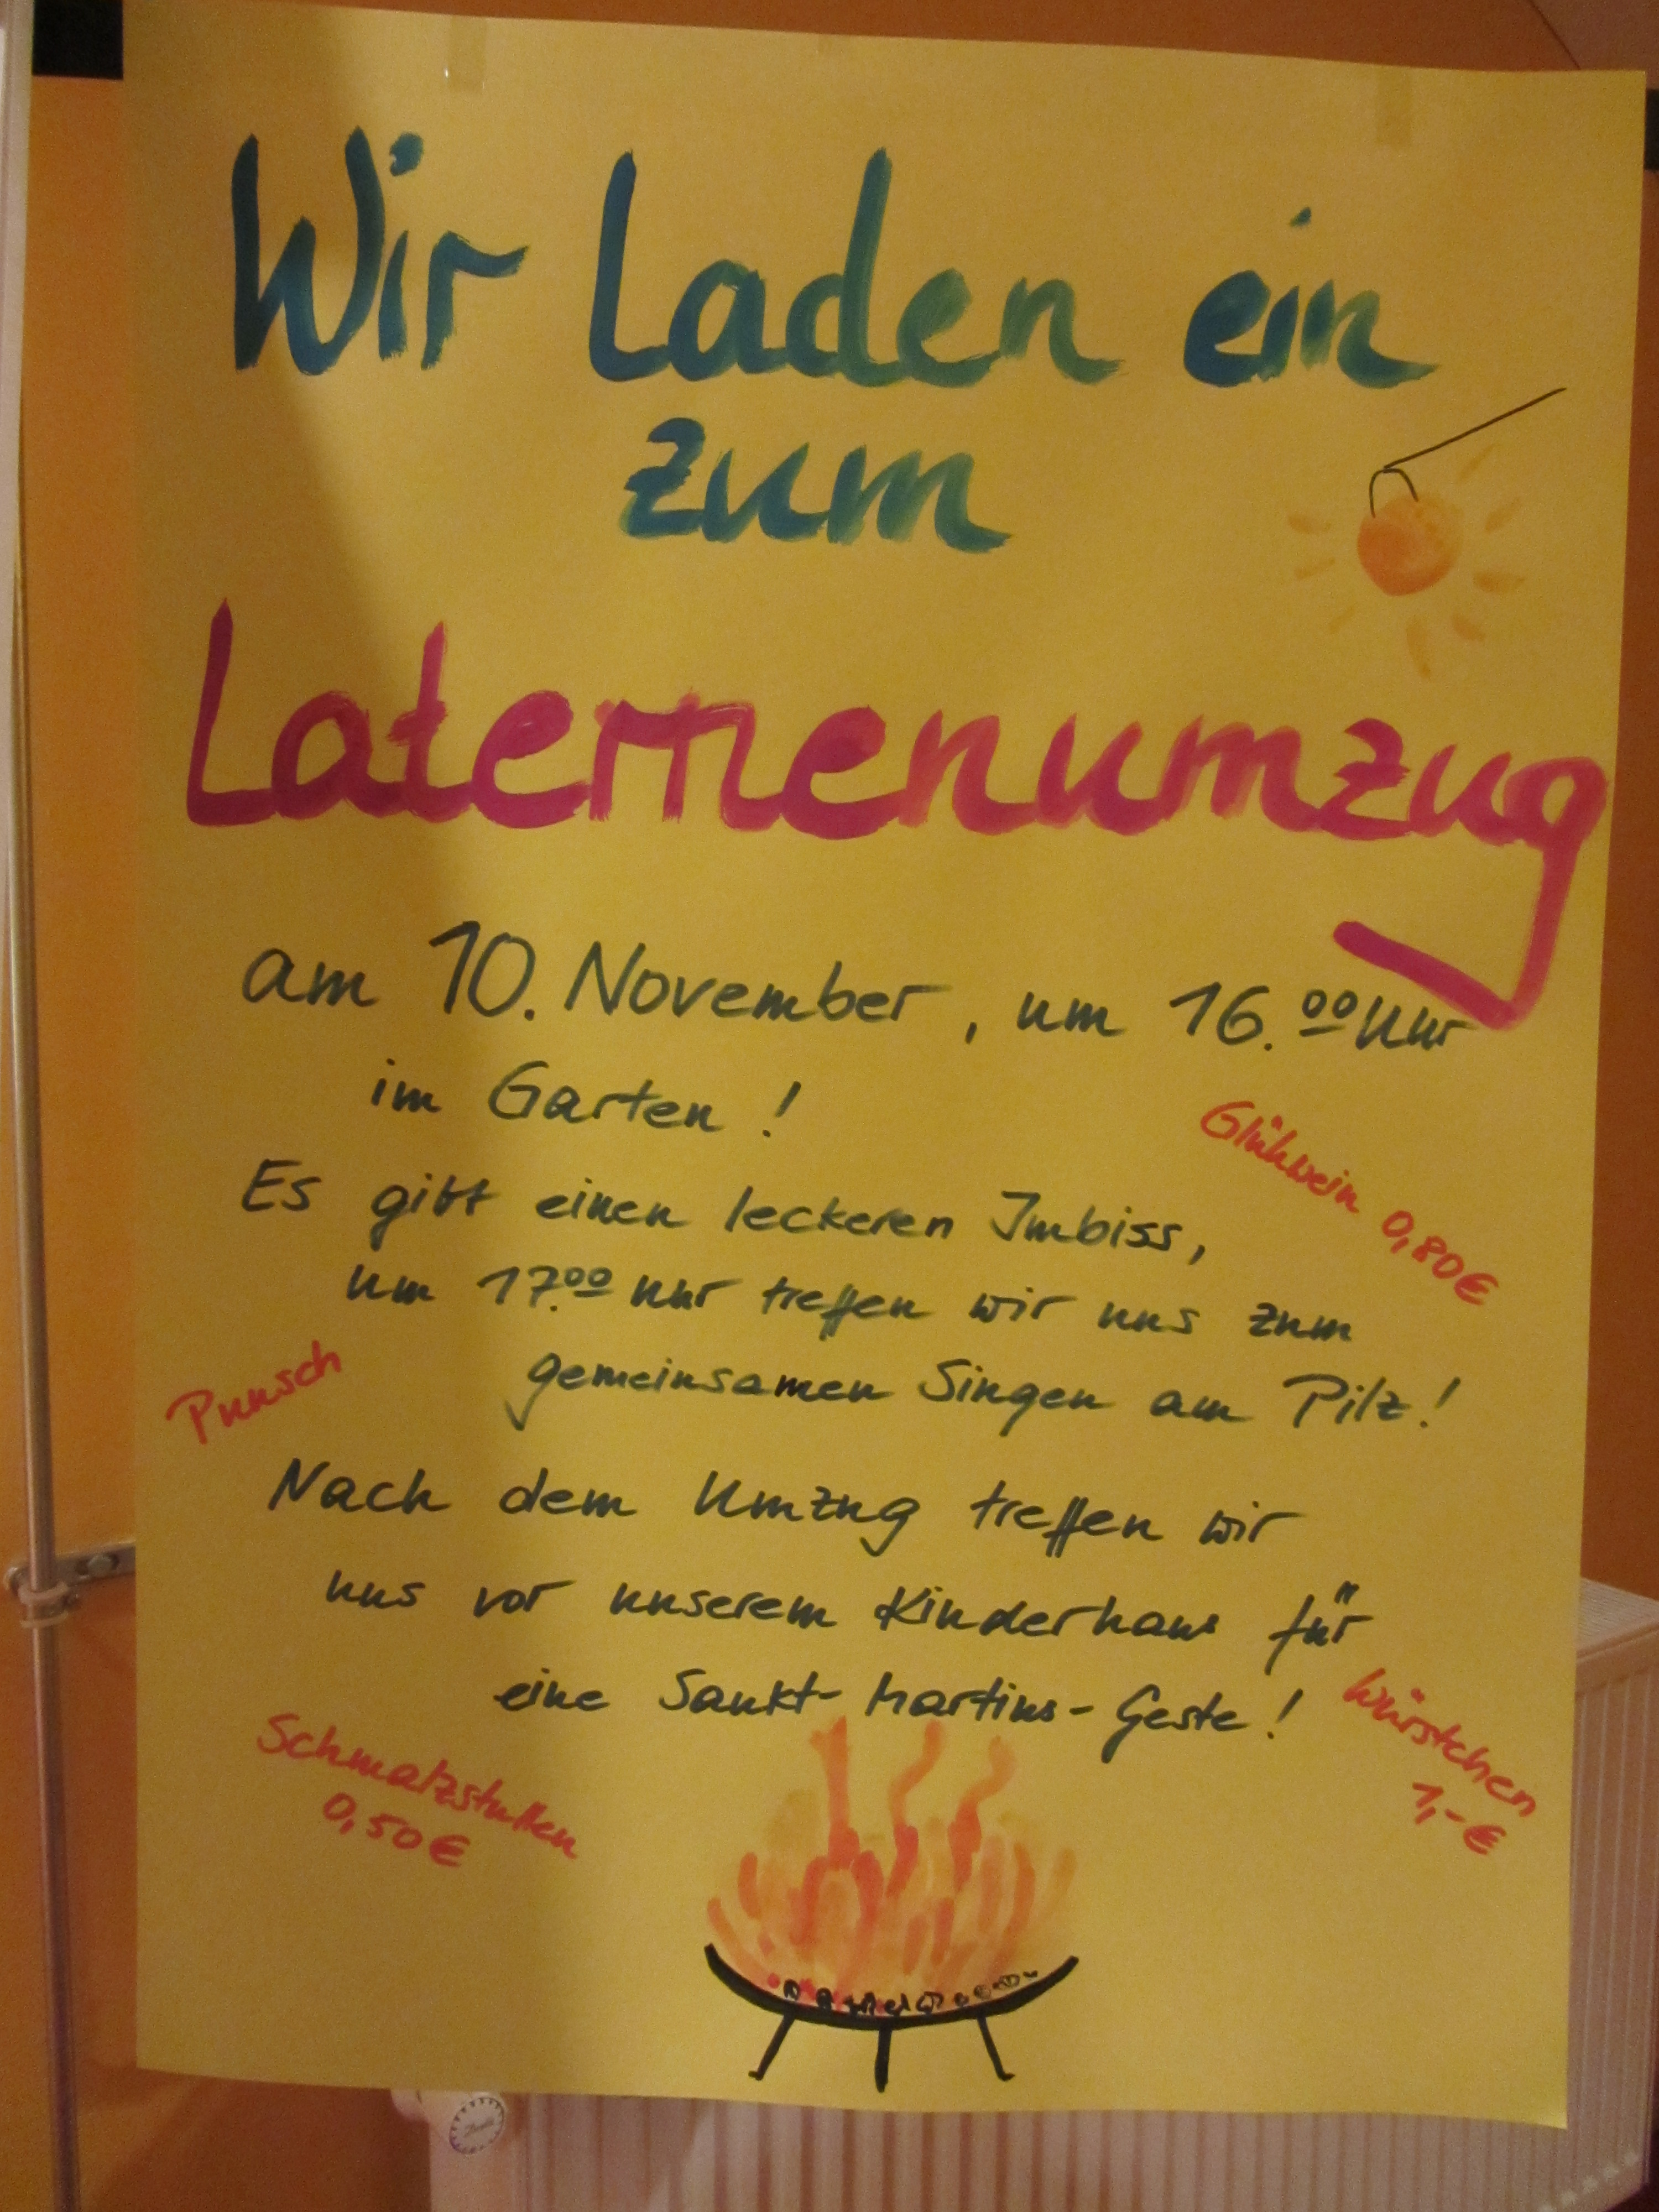 Wir laden ein
zum
Laternenumzug
am 10. November, um 16.00 Uhr
im Garten!
Glühwein 0,80€
Es gibt einen leckeren Imbiss,
um 17.00 Uhr treffen wir uns zum
gemeinsamen Singen am Pilz!
Punsch
Nach dem Umzug treffen wir
uns vor unserem Kinderhaus für
eine Sankt-Martins-Geste!
Würstchen
1,-€
Schmalzstullen
0,50€